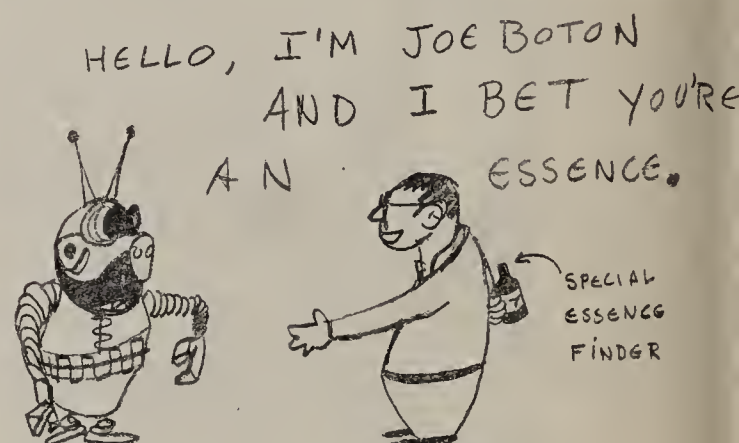 HELLO, I'M JOE BOTON
AND I BET YOU'RE
AN ESSENCE.
SPECIAL
ESSENCE
FINDER